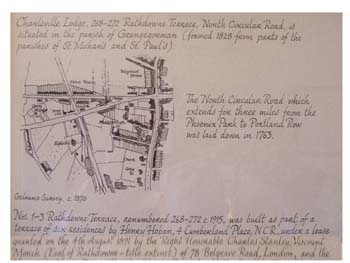 Charleville Lodge, 268-272 Rathdowne Terrace, North Circular Road, is
situated in the parish of Grangegorman (formed 1828 from parts of the
parishes of St. Michan's and St. Paul's).
The North Circular Road which
extends for three miles from the
Phoenix Park to Portland Row
was laid down in 1763.
Ordnance Survey, c. 1870
Nos. 1-3 Rathdowne Terrace, renumbered 268-272 c. 1915, was built as part of a
terrace of six residences by Henry Hoban, 4 Cumberland Place, N.C.R., under a lease
granted on the 4th August 1891 by the Right Honorable Charles Stanley, Viscount
Monck (Earl of Rathdowne - title extinct) of 78 Belgrave Road, London, and the